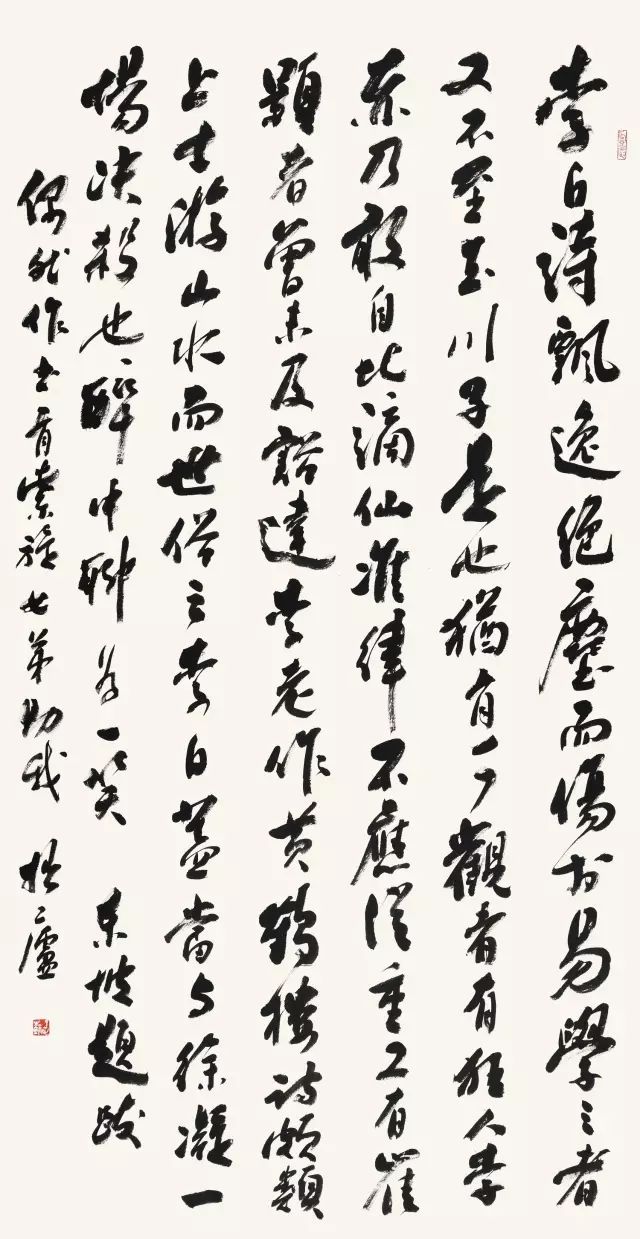 李白詩飄逸絕塵而傷於易學之者
又不至玉川子是也猶有可觀者有狂人李
赤乃敢自比謫仙准律不應從重又有崔
顥者曾未及豁達李老作黃鶴樓詩頗類
上士游山水而世俗云李白蓋當與徐凝一
場決殺也醉中聊為一笑 東坡題跋
偶然作書 七弟助我 廬